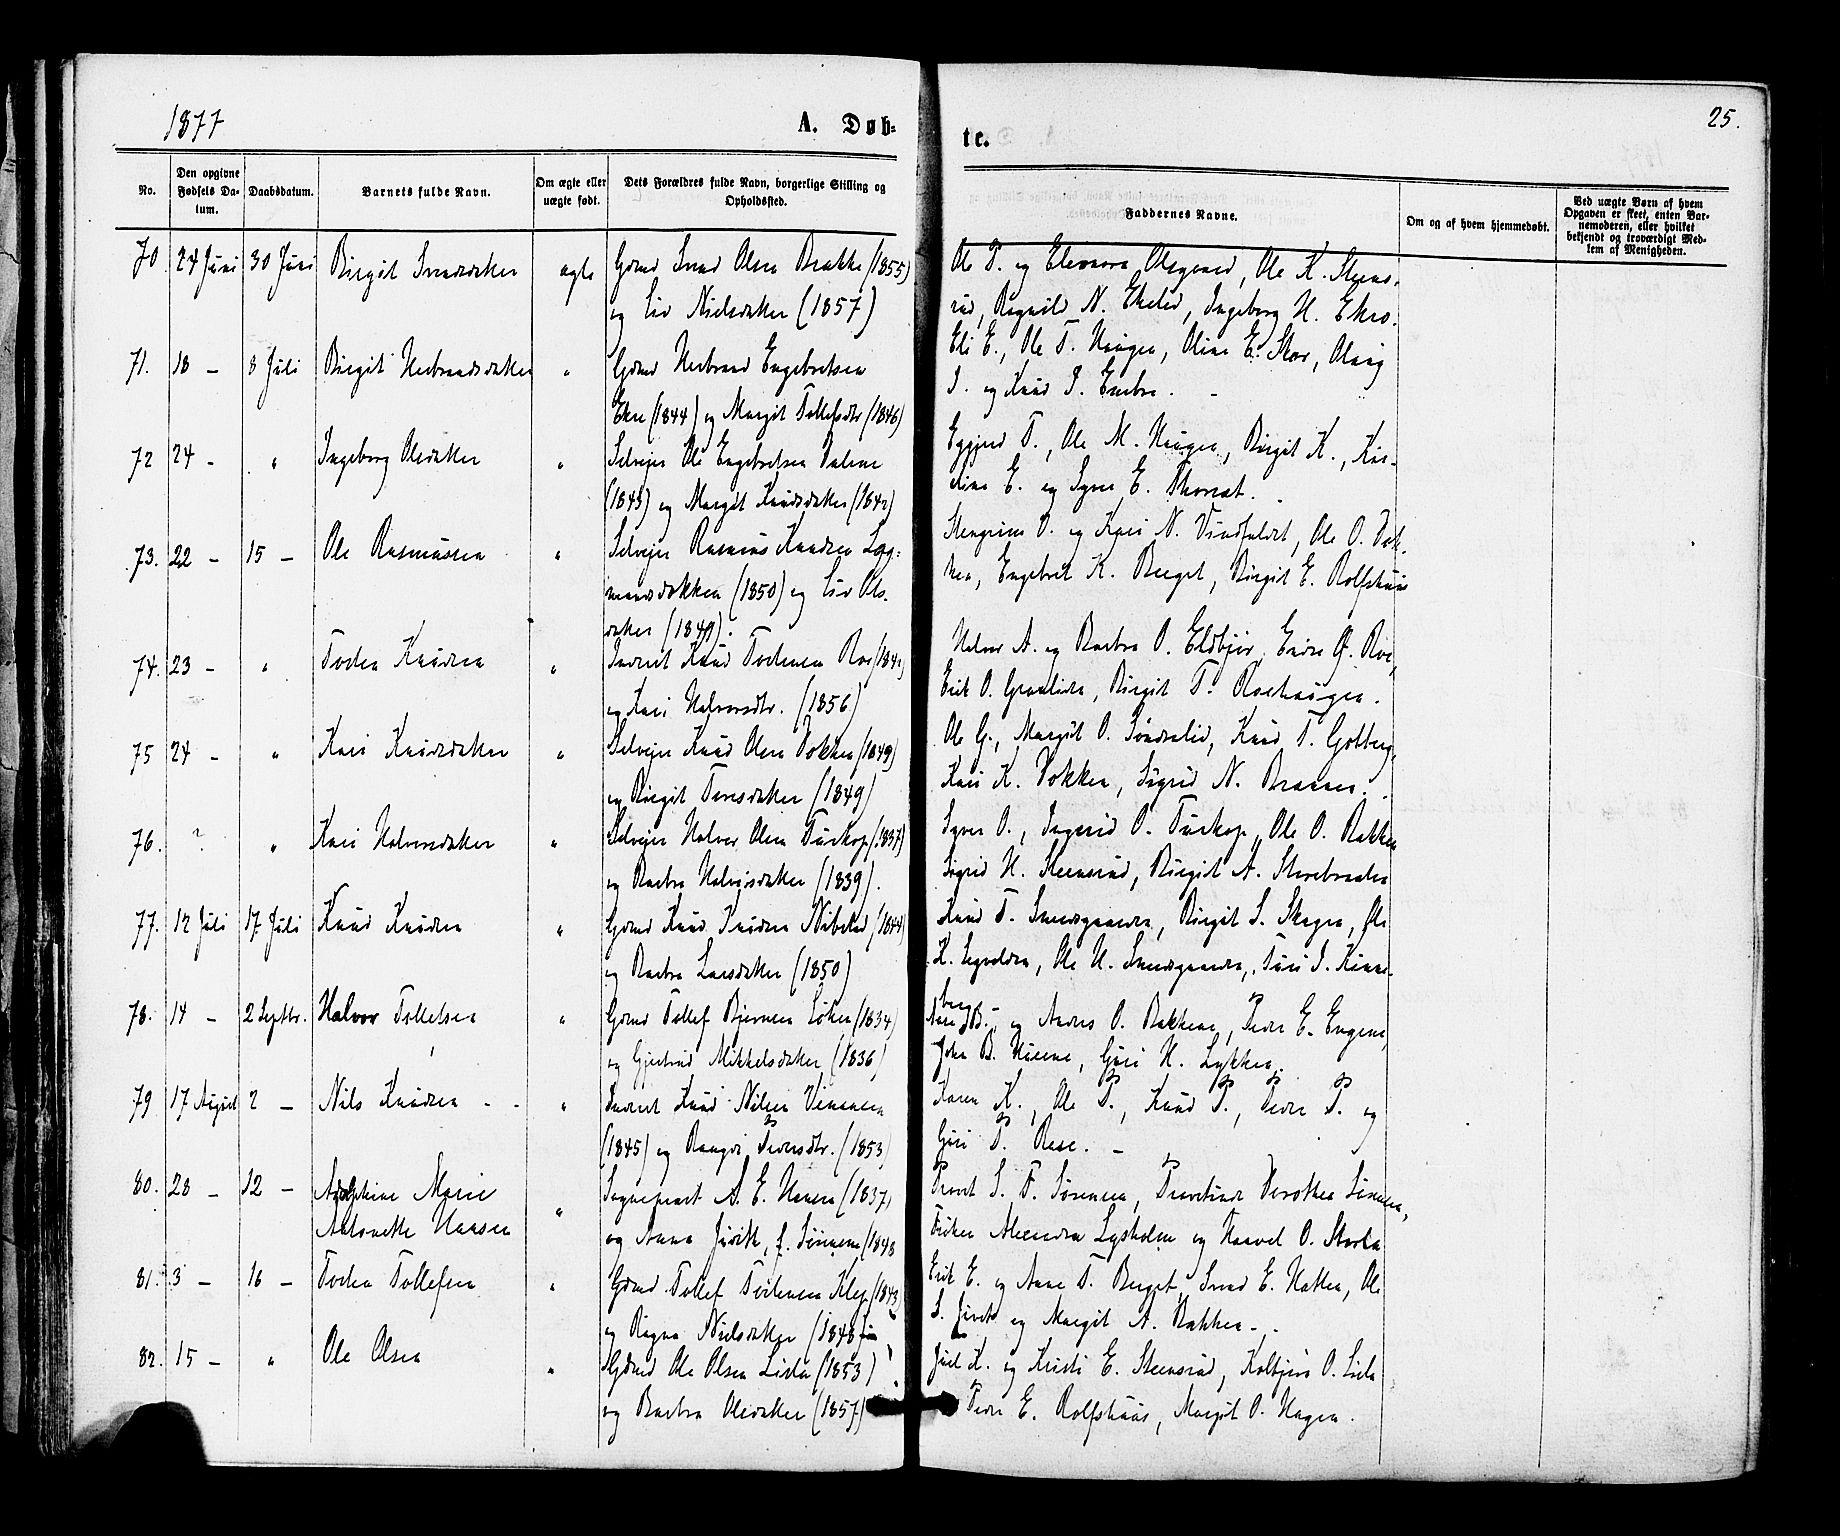 1877
A. Døb-
te.
25.
No.
Den opgivne
Fødsels Da-
tum.
Daabsdatum.
Barnets fulde Navn.
Om ægte eller
uægte født.
Dets Forældres fulde Navn, borgerlige Stilling og
Opholdssted.
Faddernes Navne.
Om og af hvem hjemmedøbt.
Ved uægte Børn af hvem
Opgaven er skeet, enten Bar-
nemoderen, eller hvilket
bekjendt og troværdigt Med-
lem af Menigheden.
70 24 Juni 30 Juni Birgit Svendsdatter ægte Gdmd Svend Olsen Brække (1855)
og Liv Nielsdatter (1857)
Ole T. og Eleonora Olsgaard, Ole K. Steens-
rud, Ragnild N. Ekelid, Ingeborg H. Ekro.
71. 18 – 8 Juli Birgit Herbrandsdatter " Gdmd Herbrand Engebretsen
Ekre (1844) og Margit Tollefsdtr (1846)
Eli E., Ole T. Haugen, Oline E. Skar, Olaug
I. og Knud I. Enebre. –
72 24 – " Ingeborg Olesdatter " Selvejer Ole Engebretsen Dalene
(1843) og Margit Knudsdatter (1842)
T., Ole M. Haugen, Birgit K., Kar-
oline E. og Syver E. Thorset.
73. 22 – 15 – Ole Rasmussen " Selvejer Rasmus Knudsen Lag-
mandsdokken (1850) og Liv Ols-
datter (1849).
Stengrim O. og Kari N. Vindfaldet, Ole O. Dok-
ken, Engebret K. Berget, Birgit E. Rolfshuus
74. 23 – " Torden Knudsen " Inderst Knud Tordensen Roe (1841)
og Kari Halvorsdtr. (1856)
Halvor A. og Barbra O. Eldbjør, Endre Ø. Roe,
Erik O. Granlien, Birgit T. Roehaugen.
75 24 – " Kari Knudsdatter " Selvejer Knud Olsen Dokken (1849)
og Birgit Turesdatter (1849)
Ole G., Margit O. Søndrelid, Knud T. Golberg,
Kari K. Dokken, Sigrid N. Braaten.
76. ? " Kari Halvorsdatter " Selvejer Halvor Olsen Turkop (1837)
og Barbra Halvorsdatter (1839).
Syver O., Ingerid O. Turkop, Ole O. Bakken
Sigrid H. Steensrud, Birgit A. Storebraaten
77. 12 Juli 17 Juli Knud Knudsen " Gdmd Knud Knudsen Nibstad (1844)
og Barbra Larsdatter (1850)
Knud T. Smedsgaarden, Birgit S. Skagen, Ole
K. Segvolden, Ole H. Smedsgaarden, Turi I. Kinne-
berg –
78. 14 – 2 Septbr. Halvor Tollefsen " Gdmd Tollef Bjørnsen Løken (1834)
og Gjertrud Mikkelsdatter (1836)
B. og Anders O. Bakkene, Peder E. Engene,
John B. Hiiene, Guri H. Lykken.
79 17 August 2 – Nils Knudsen – – " Inderst Knud Nilsen
(1845) og Rangdi Pedersdtr. (1853)
Karen K., Ole P., Knud P., Peder P. og
Guri P. Rese. –
80. 28 – 12 – Adolphine Marie
Antonette Hansen " Sognepræst A. E. Hansen (1837)
og Anna Judith, f. Sørensen (1848
Provst S. T. Sørensen, Provstinde Dorothea Sørensen,
Frøken Alexandra Lysholm og Haavel O. Starla
81. 3 – 16 – Torden Tollefsen " Gdmd Tollef Tordensen Klep (1843)
og Ragna Nielsdatter (1848
Erik E. og Anne T. Berget, Svend E. Hatten, Ole
S. og Margit A. Bakken –.
82. 15 – " Ole Olsen " Gdmd Ole Olsen Lista (1853)
og Barbra Olesdatter (1857)
Juel K. og Kristi E. Steensrud, Kolbjørn O. Lista
Peder E. Rolfshuus, Margit O. Hagen.